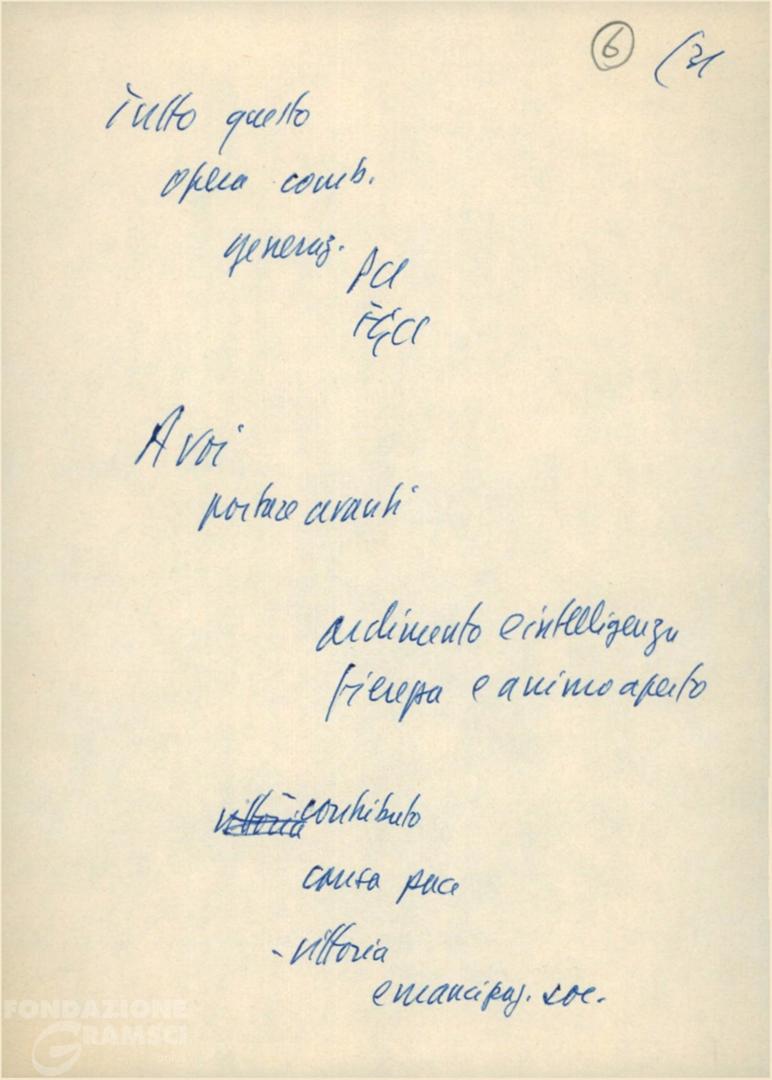 6 (21
Tutto questo
opera comb.
generaz.
PCI
FGCI
A voi
portare avanti
ardimento e intelligenza
fierezza e animo aperto
vittoria contributo
causa pace
- vittoria
emancipaz. soc.
FONDAZIONE
GRAMSCI